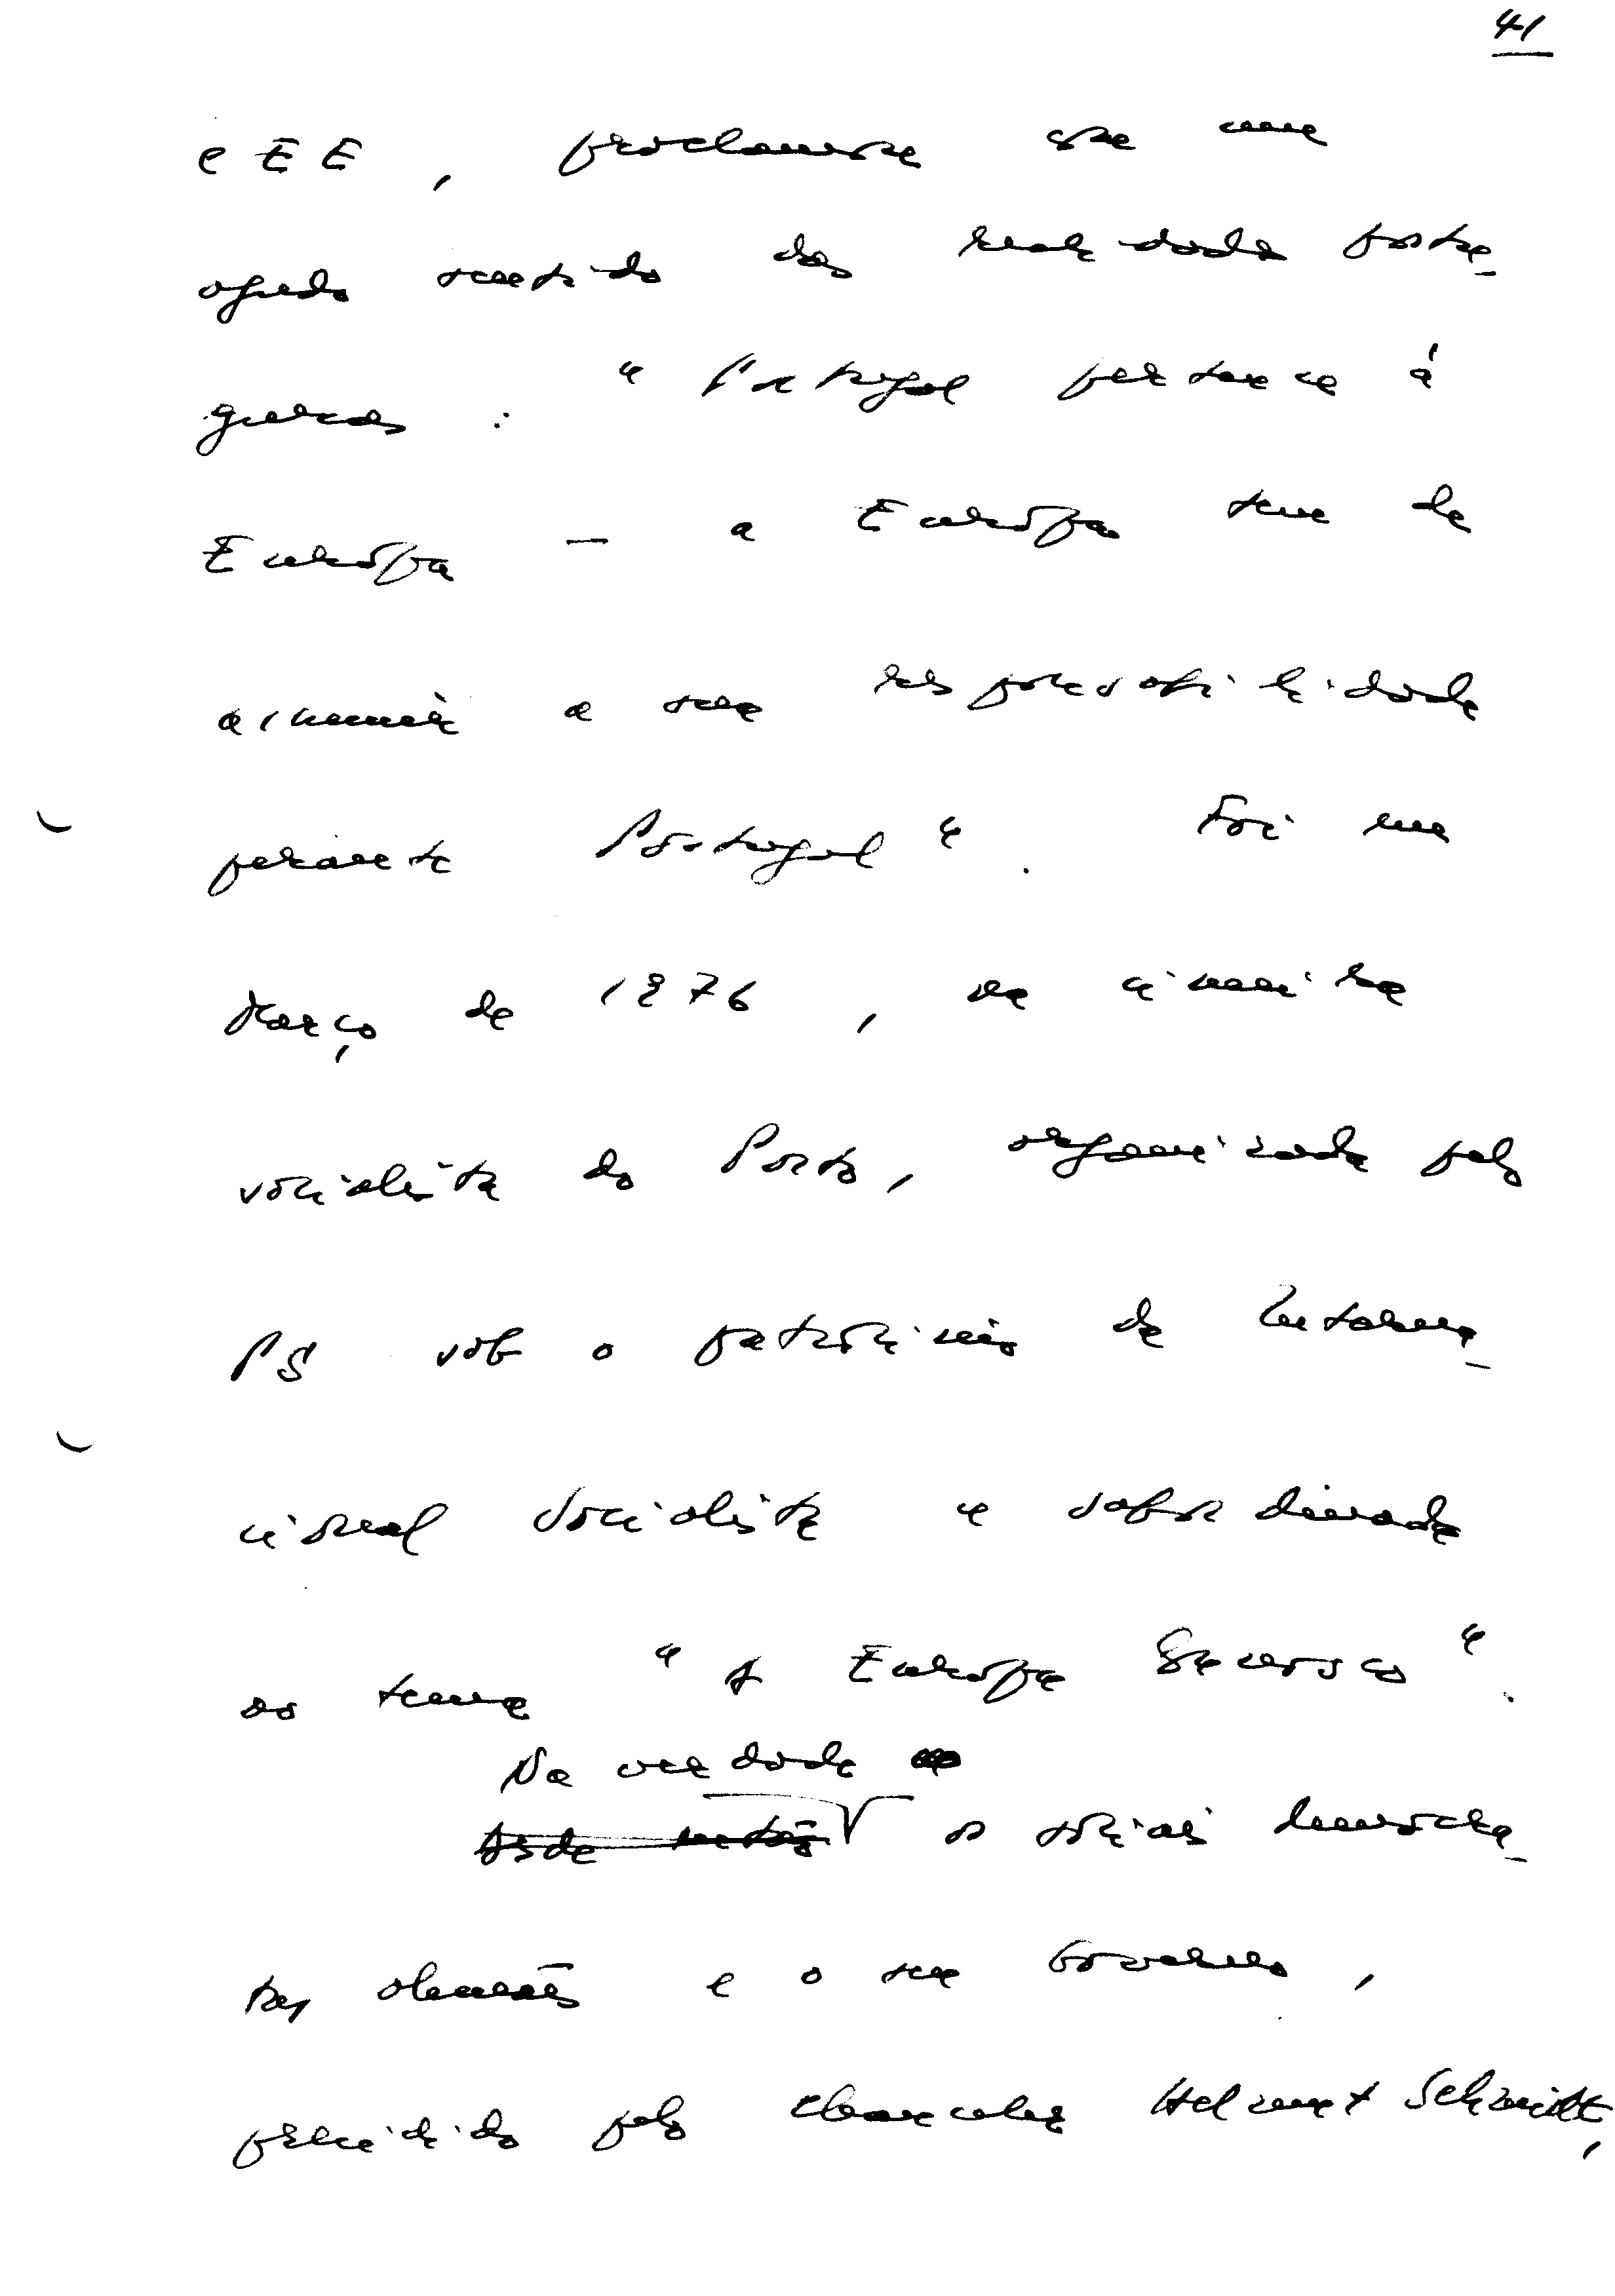 41
CEE, proclamava que um
agudo sentido das realidades portu-
guesas: "Portugal pertence à
Europa — a Europa tem de
assumir a sua responsabilidade
perante Portugal". Foi em
Março de 1976, na cimeira
socialista do Porto, organizada pelo
PS sob o patrocínio da Interna-
cional Socialista e subordinada
ao tema "A Europa Connosco".
Na verdade
os sociais democra-
tas alemães e o seu Governo,
presidido pelo chanceler Helmut Schmidt,